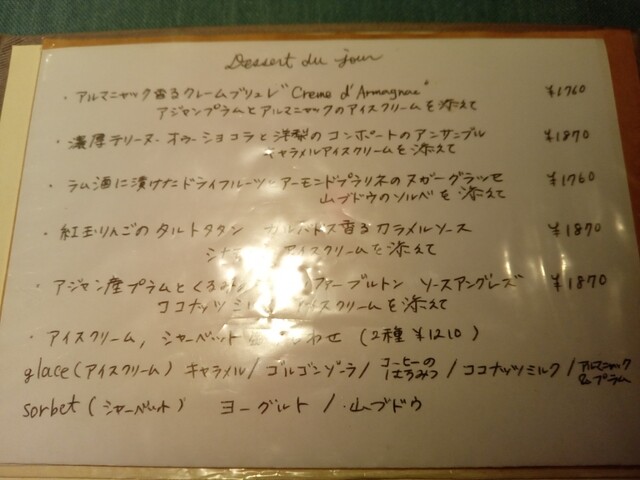 Dessert du jour
・アルマニャック香るクレームブリュレ "Creme d'Armagnac" ¥1760
アジャンプラムとアルマニャックのアイスクリームを添えて
・濃厚テリーヌ・オゥ・ショコラと洋梨のコンポートのアンサンブル ¥1870
キャラメルアイスクリームを添えて
・ラム酒に漬けたドライフルーツ・アーモンドプラリネのヌガーグラッセ ¥1760
山ブドウのソルベを添えて
・紅玉りんごのタルトタタン カルバドス香るカラメルソース ¥1870
アイスクリームを添えて
・アジャン産プラムとくるみ ファーブルトン ソースアングレーズ ¥1870
ココナッツミルク アイスクリームを添えて
・アイスクリーム, シャーベット わせ (2種 ¥1210)
glace(アイスクリーム) キャラメル/ゴルゴンゾーラ/コーヒーのはちみつ/ココナッツミルク/アルマニャック&プラム
sorbet(シャーベット) ヨーグルト/山ブドウ